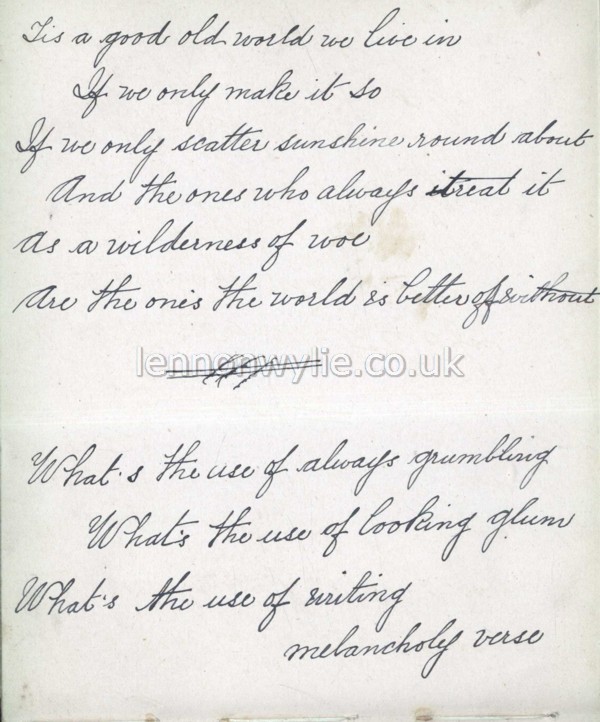 Tis a good old world we live in
If we only make it so
If we only scatter sunshine round about
And the ones who always treat it
As a wilderness of woe
Are the ones the world is better of without
lennonwylie.co.uk
What's the use of always grumbling
What's the use of looking glum
What's the use of writing
melancholy verse